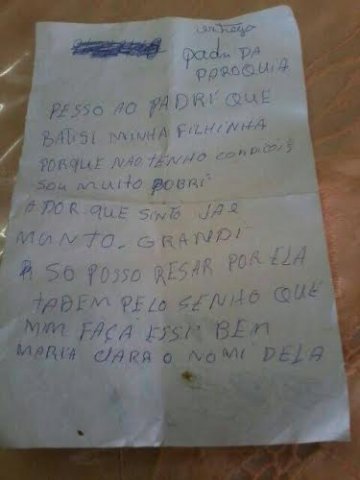 entrego
padri DA
PAROQUIA
PESSO AO PADRI QUE
BATISI MINHA FILHINHA
PORQUE NÃO TENHO CONDICÓIS
SOU MUITO POBRI
A DOR QUE SINTO JA E
MUNTO GRANDI
SO POSSO RESAR POR ELA
TABEM PELO SENHO QUE
MIM FAÇA ESSI BEM
MARIA CLARA O NOMI DELA